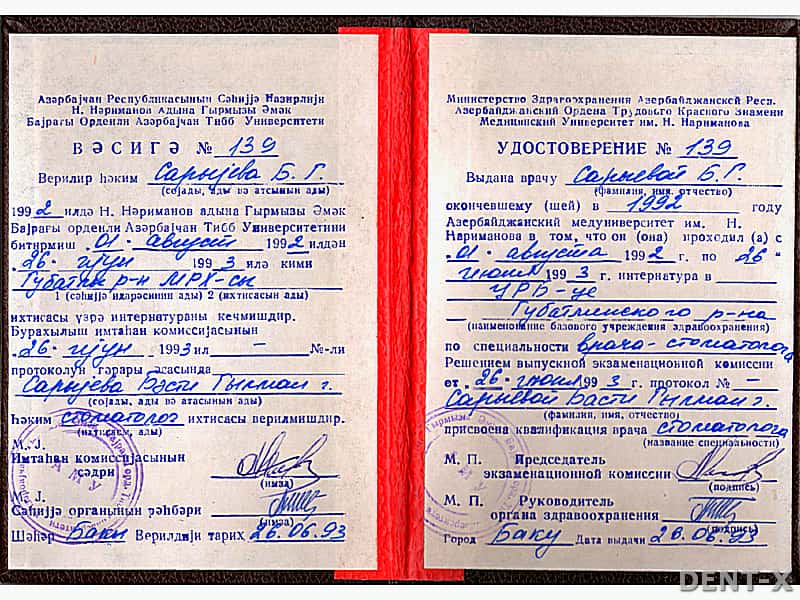 Азәрбајҹан Республикасынын Сәһијјә Назирлији
Н. Нәриманов Адына Гырмызы Әмәк
Бајрағы Орденли Азәрбајҹан Тибб Университети
ВӘСИГӘ № 139
Верилир һәким Сарыјева Б. Г.
(сојады, ады вә атсынын ады)
1992 илдә Н. Нәриманов адына Гырмызы Әмәк
Бајрағы орденли Азәрбајҹан Тибб Университетини
битирмиш .01. август 1992 илдән
.26. ијун 1993 илә кими
Губатлы р-н МРХ-сы
1 (сәһијјә идарәсинин ады) 2 (ихтисасын ады)
ихтисасы үзрә интернатураны кечмишдир.
Бурахылыш имтаһан комиссијасынын
.26. ијун 1993 ил — №-ли
протоколун гәрары әсасында
Сарыјева Бәсти Гылман г.
(сојады, ады вә атасынын ады)
һәким стоматолог ихтисасы верилмишдир.
(ихтисасы, ады)
М. Ј.
Имтаһан комиссијасынын
сәдри
(имза)
М. Ј.
Сәһијјә органынын рәһбәри
(имза)
Шәһәр Бакы Верилдији тарих 26.06.93
Министерство Здравоохранения Азербайджанской Респ.
Азербайджанский Ордена Трудового Красного Знамени
Медицинский Университет им. Н. Нариманова
УДОСТОВЕРЕНИЕ № 139
Выдана врачу Сарыевой Б. Г.
(фамилия, имя, отчество)
окончившему (шей) в 1992 году
Азербайджанский медуниверситет им. Н.
Нариманова в том, что он (она) проходил (а) с
.01. августа 1992 г. по 26-
июня 1993 г. интернатура в
ЦРБ-це
Губатлинского р-на
(наименование базового учреждения здравоохранения)
по специальности врача-стоматолога
Решением выпускной экзаменационной комиссии
от .26. июня 1993 г. протокол № —
Сарыевой Басти Гылман г.
(фамилия, имя, отчество)
присвоена квалификация врача стоматолога
(название специальности)
М. П. Председатель
экзаменационной комиссии
(подпись)
М. П. Руководитель
органа здравоохранения
(подпись)
Город Баку Дата выдачи 26.06.93
DENT-X